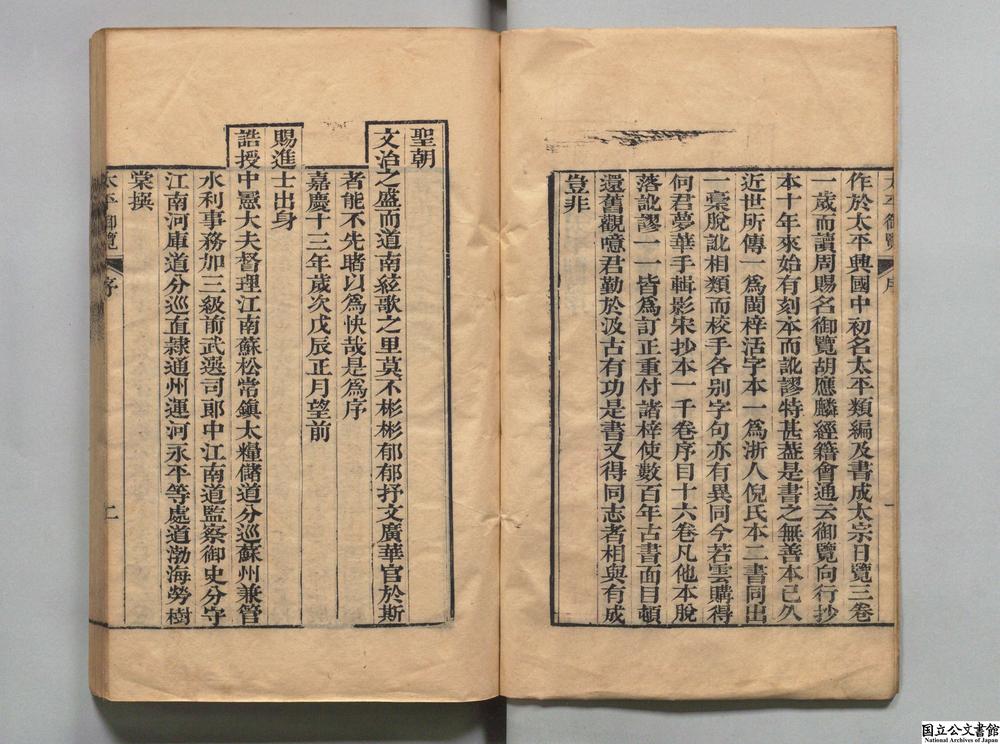 太平御覽 序 一
作於太平興國中初名太平類編及書成太宗日覽三卷
一歲而讀周賜名御覽胡應麟經籍會通云御覽向行抄
本十年來始有刻本而訛謬特甚葢是書之無善本已久
近世所傳一爲閩梓活字本一爲浙人倪氏本二書同出
一稾脫訛相類而校手各別字句亦有異同今若雲購得
何君夢華手輯影宋抄本一千卷序目十六卷凡他本脫
落訛謬一一皆爲訂正重付諸梓使數百年古書面目頓
還舊觀噫君勤於汲古有功是書又得同志者相與有成
豈非
聖朝
文治之盛而道南絃歌之里莫不彬彬郁郁抒文廣華官於斯
者能不先睹以爲快哉是爲序
嘉慶十三年歲次戊辰正月望前
賜進士出身
誥授中憲大夫督理江南蘇松常鎮太糧儲道分巡蘇州兼管
水利事務加三級前武選司郎中江南道監察御史分守
江南河庫道分巡直隷通州運河永平等處道渤海勞樹
棠撰
太平御覽 序 二
国立公文書館
National Archives of Japan